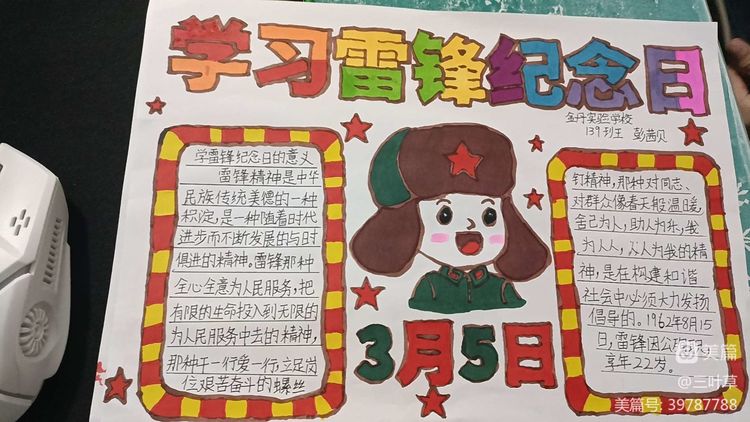 学习雷锋纪念日
金丹实验学校
139班 彭茜贝
学雷锋纪念日的意义
雷锋精神是中华
民族传统美德的一种
积淀,是一种随着时代
进步而不断发展的与时
俱进的精神。雷锋那种
全心全意为人民服务,把
有限的生命投入到无限的
为人民服务中去的精神,
那种干一行爱一行,立足岗
位艰苦奋斗的螺丝
钉精神,那种对同志、
对群众像春天般温暖,
舍己为人,助人为乐,我
为人人,人人为我的精
神,是在构建和谐
社会中必须大力发扬
倡导的。1962年8月15
日,雷锋因公
享年22岁。
3月5日
美篇
@三叶草
美篇号: 39787788